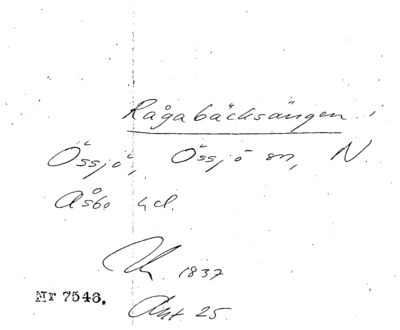 Rågabäcksängen i
Össjö, Össjö sn, N.
Åsbo hd.
1837
Nr 7548. Akt 25.